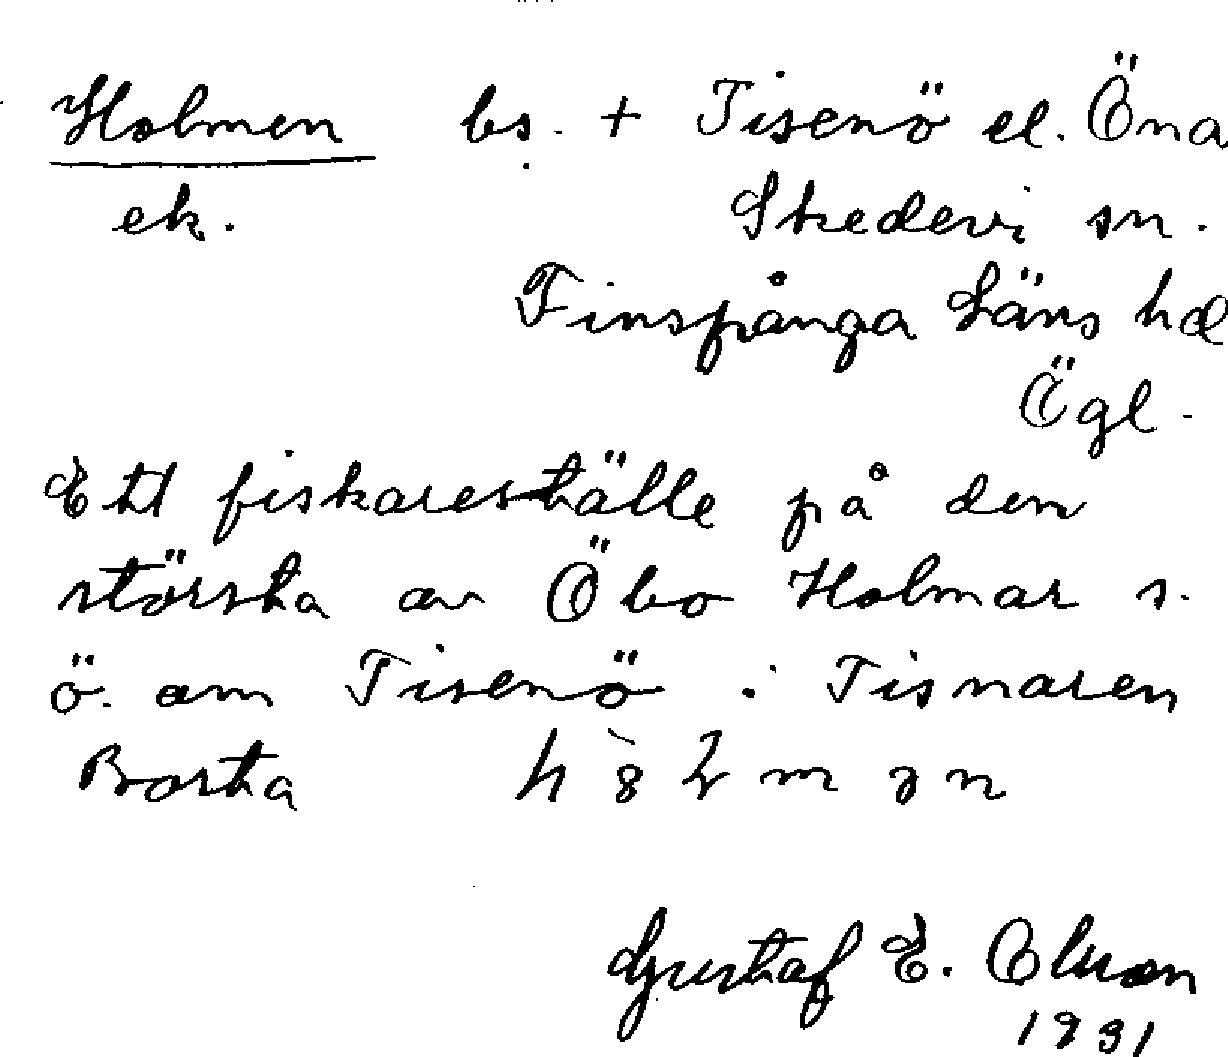 Holmen bs. + Tisenö el. Öna
ek. Skedevi sn.
Finspånga Läns hd
Ögl.
Ett fiskareställe på den
största av Öbo Holmar s.
ö. om Tisenö i Tisnaren
Borta
Gustaf E. Olson
1931